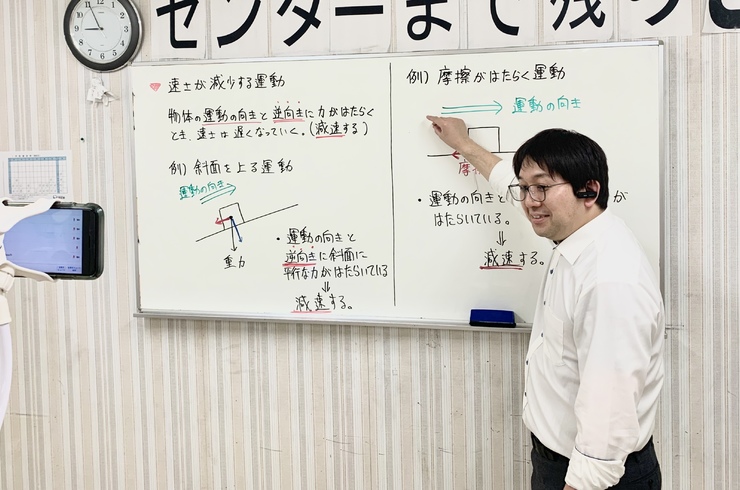 センターまで残り
速さが減少する運動
物体の運動の向きと逆向きに力がはたらく
とき、速さは遅くなっていく。(減速する)
例) 斜面を上る運動
運動の向き
重力
・運動の向きと
逆向きに斜面に
平行な力がはたらいている
⇓
減速する。
例) 摩擦がはたらく運動
運動の向き
摩
・運動の向きと
が
はたらいている。
⇓
減速する。